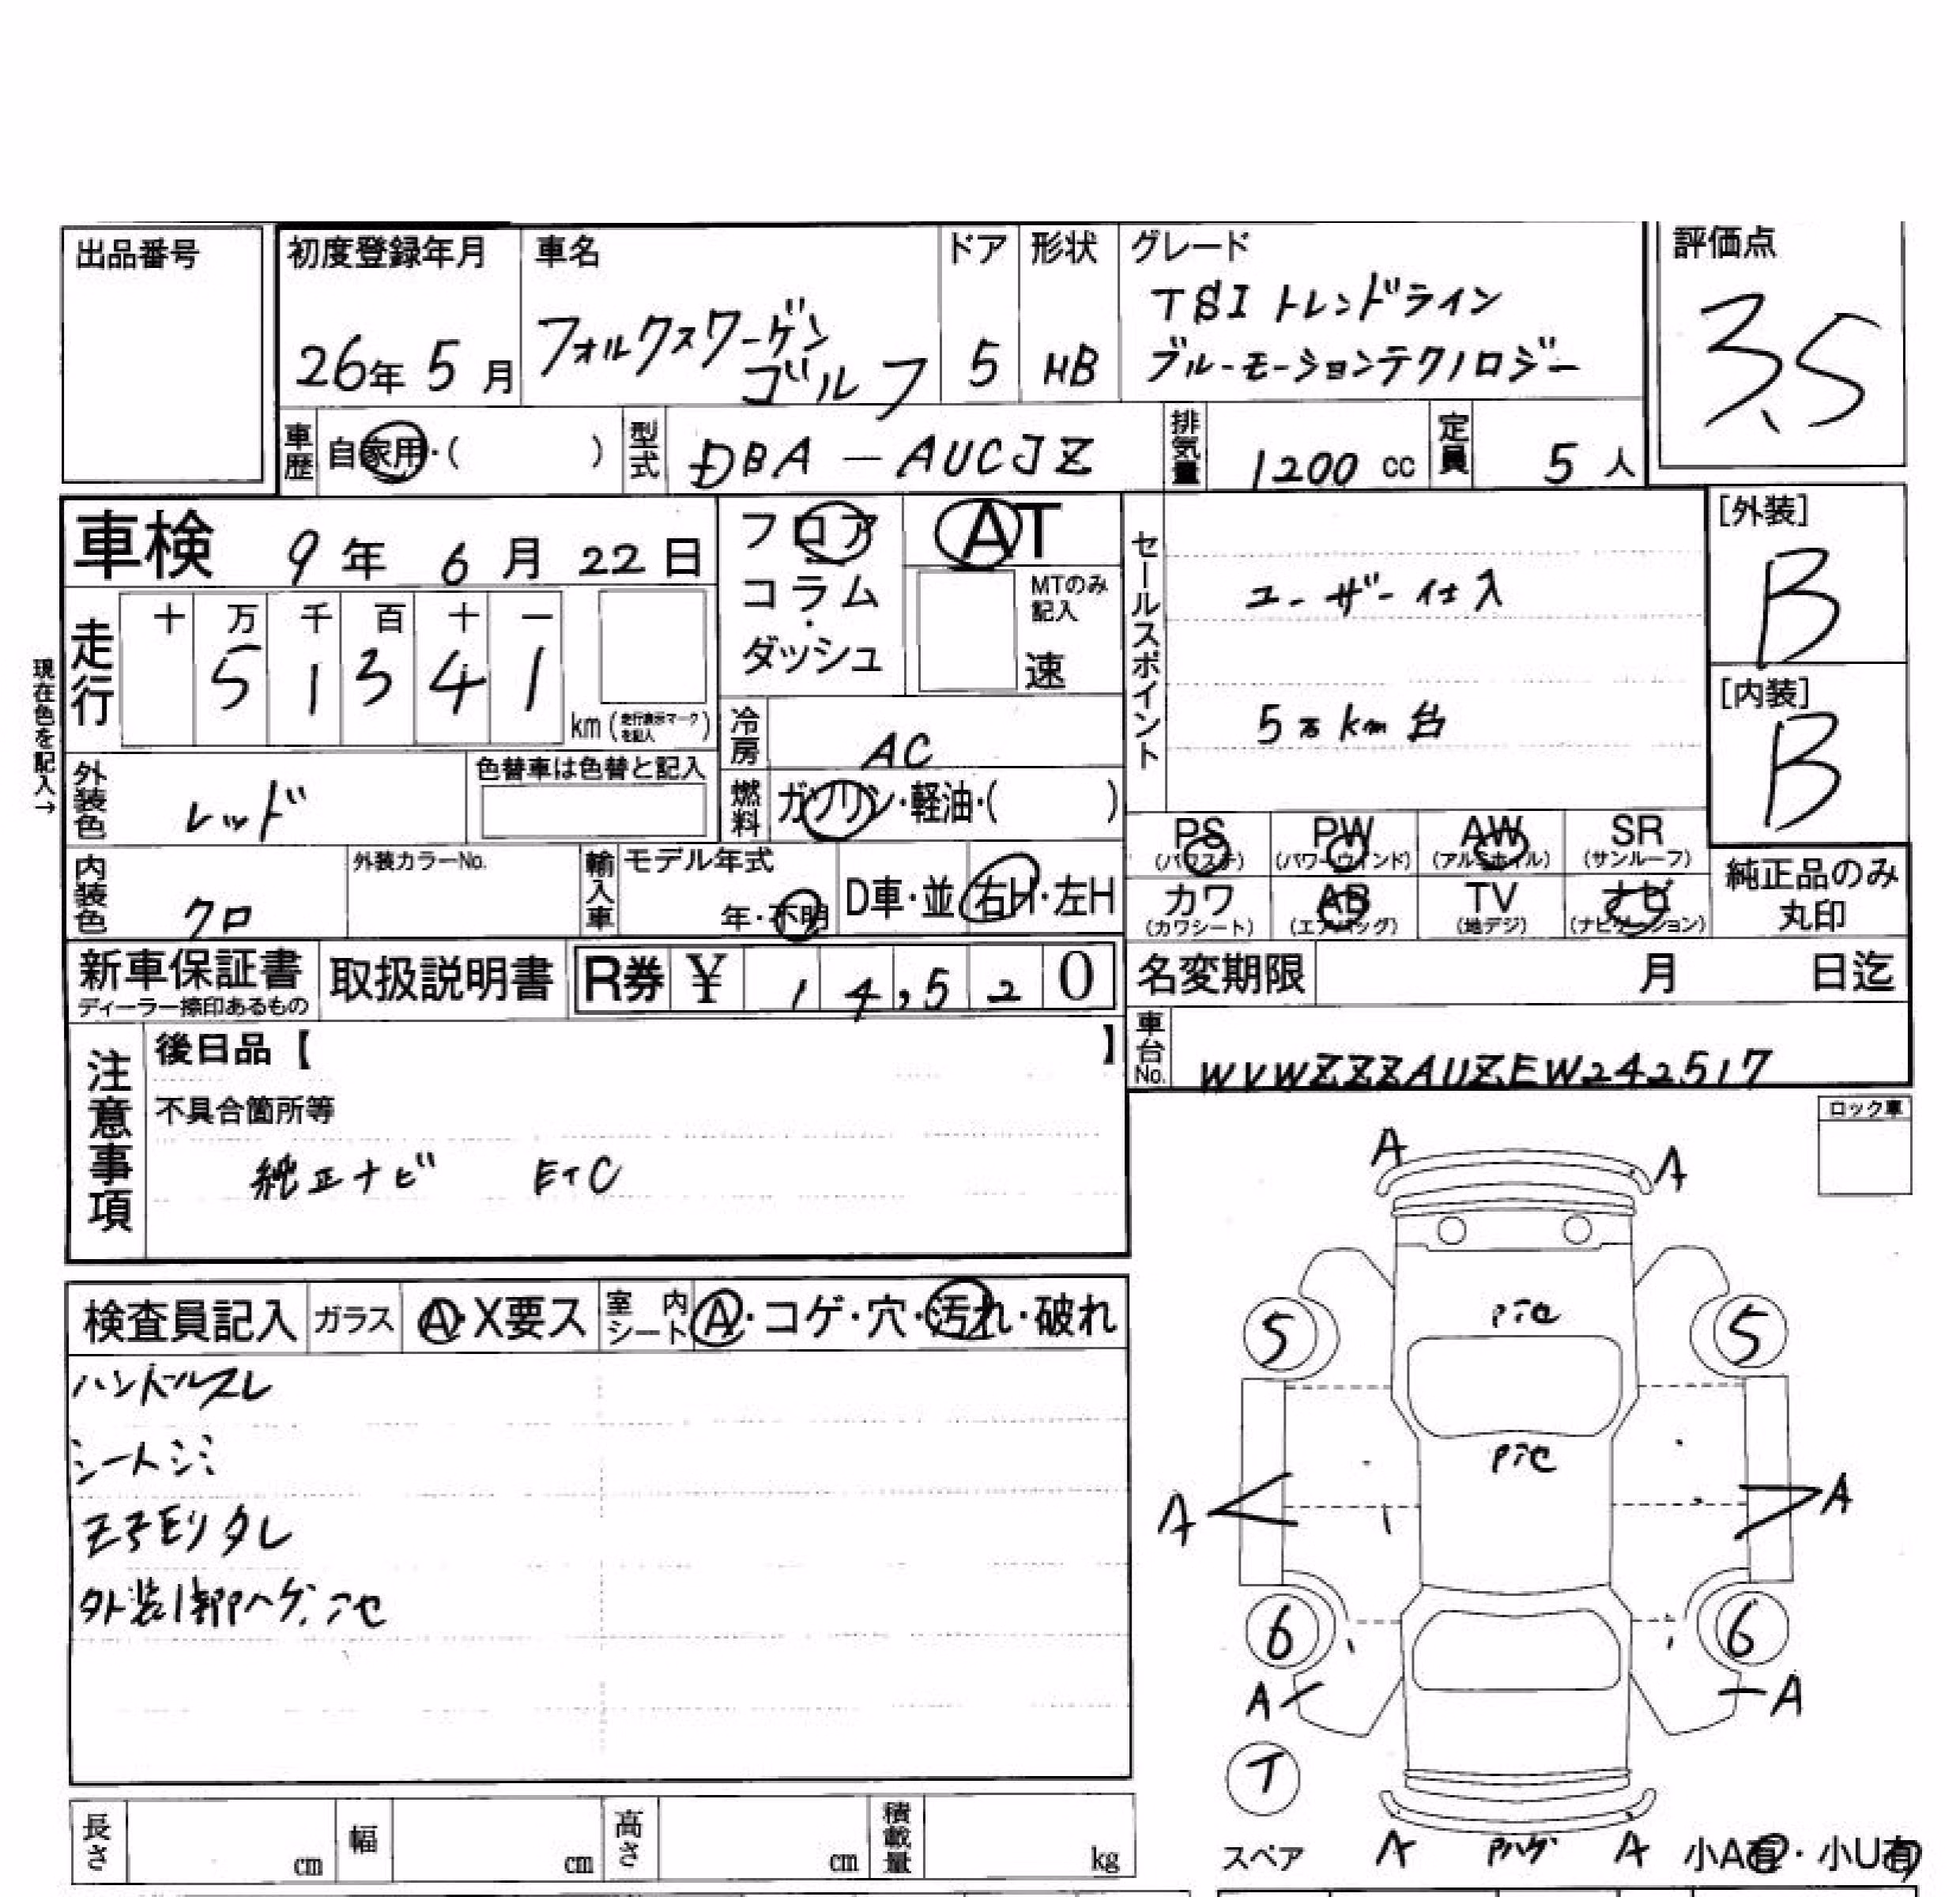 出品番号
初度登録年月 車名 ドア 形状 グレード 評価点
26年 5月 フォルクスワーゲン ゴルフ 5 HB TSI トレンドライン
ブルーモーションテクノロジー
3.5
車歴 自家用・( ) 型式 DBA-AUCJZ 排気量 1200 cc 定員 5 人
車検 9 年 6 月 22 日
フロア
コラム・
ダッシュ
AT
MTのみ記入
速
セールスポイント
ユーザー仕入
5万km台
[外装]
B
[内装]
B
現在色を記入→
走行 十 万 千 百 十 一
5 1 3 4 1
km (走行表示マークを記入)
冷房 AC
外装色 レッド 色替車は色替と記入
燃料 ガソリン・軽油・( )
PS (パワステ) PW (パワーウインド) AW (アルミホイル) SR (サンルーフ)
カワ (カワシート) AB (エアバッグ) TV (地デジ) ナビ (ナビゲーション)
純正品のみ
丸印
内装色 クロ 外装カラーNo. 輸入車 モデル年式 年・不明 D車・並 右H・左H
新車保証書 ディーラー捺印あるもの 取扱説明書 R券 ¥ 14,520
名変期限 月 日迄
車台No. WVWZZZAUZEW242517
注意事項
後日品【 】
不具合箇所等
純正ナビ ETC
ロック車
検査員記入 ガラス A・X要ス 室内シート A・コゲ・穴・汚れ・破れ
ハンドルスレ
シートシミ
外装1部ハゲ、
A A
5 5
A A
6 6
A A
T
スペア
A A
小A有・小U有
長さ cm 幅 cm 高さ cm 積載量 kg